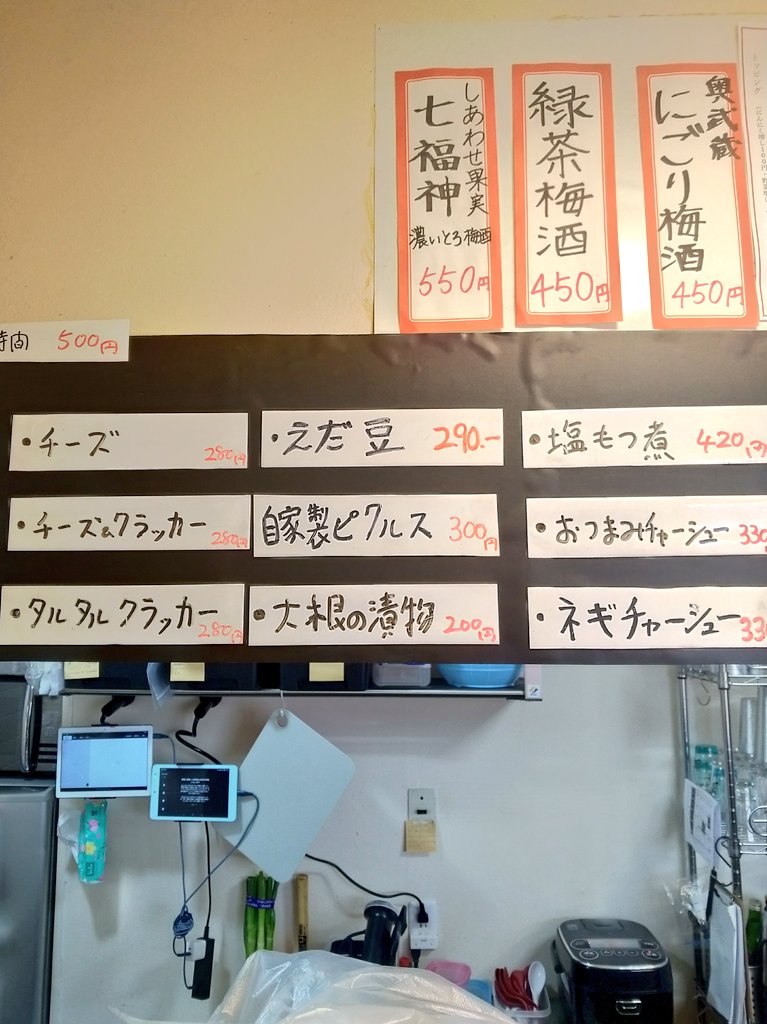 しあわせ果実
七福神
濃いとろ梅酒
550円
緑茶梅酒
450円
奥武蔵
にごり梅酒
450円
トッピング
時間 500円
・チーズ 280円
・えだ豆 290.-
・塩もつ煮 420円
・チーズ&クラッカー 280円
自家製ピクルス 300円
・おつまみチャーシュー 330
・タルタルクラッカー 280円
・大根の漬物 200円
・ネギチャーシュー 330